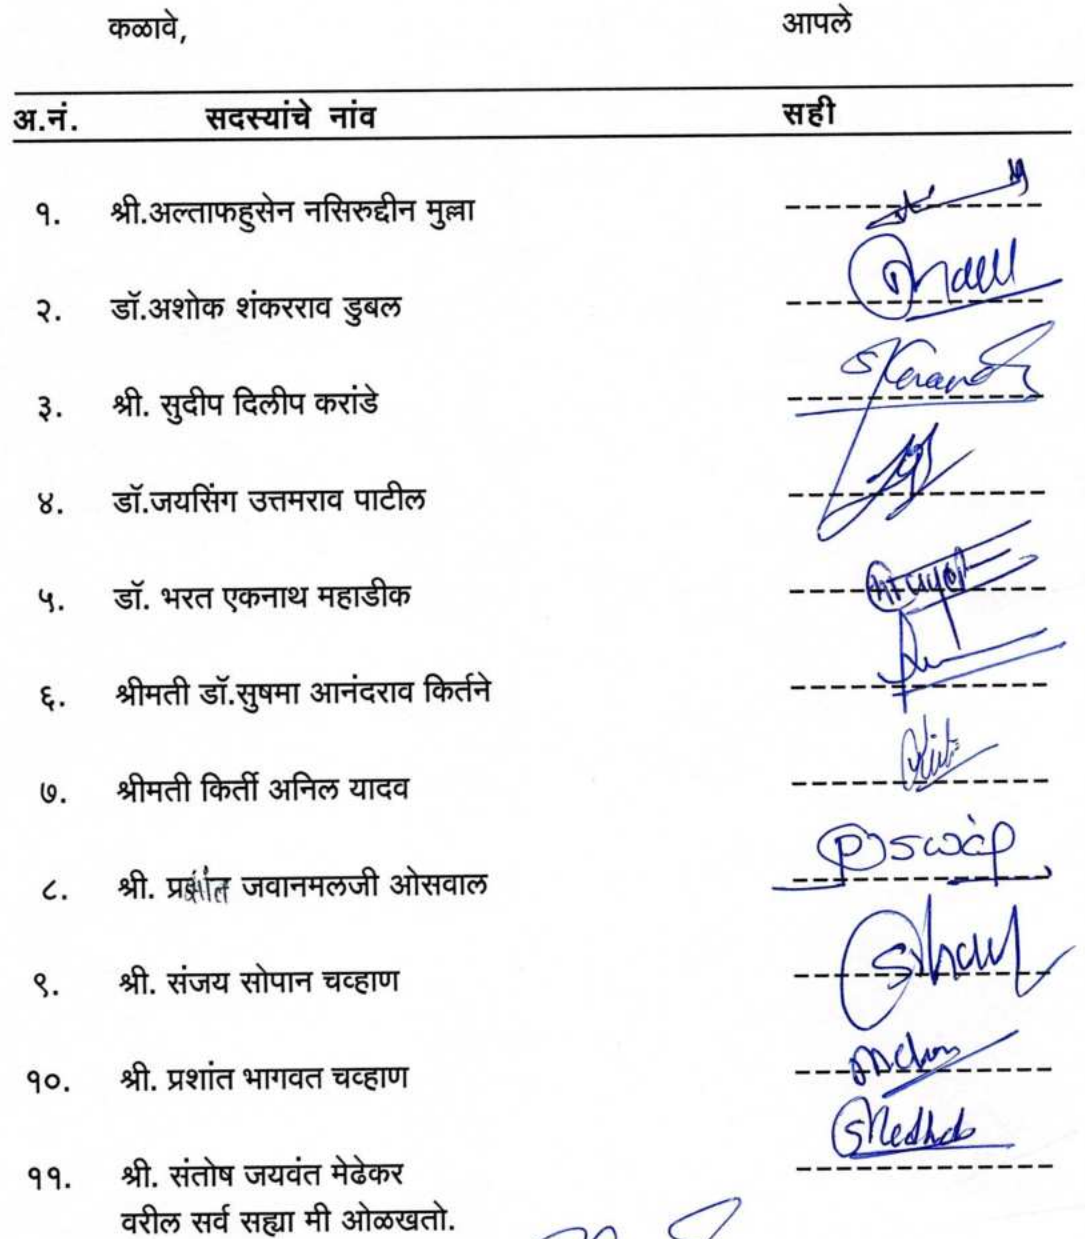 कळावे, आपले
अ.नं. सदस्यांचे नांव सही
१. श्री.अल्ताफहुसेन नसिरुद्दीन मुल्ला
२. डॉ.अशोक शंकरराव डुबल
३. श्री. सुदीप दिलीप करांडे
४. डॉ.जयसिंग उत्तमराव पाटील
५. डॉ. भरत एकनाथ महाडीक
६. श्रीमती डॉ.सुषमा आनंदराव किर्तने
७. श्रीमती किर्ती अनिल यादव
८. श्री. प्रशांत जवानमलजी ओसवाल
९. श्री. संजय सोपान चव्हाण
१०. श्री. प्रशांत भागवत चव्हाण
११. श्री. संतोष जयवंत मेढेकर
वरील सर्व सह्या मी ओळखतो.